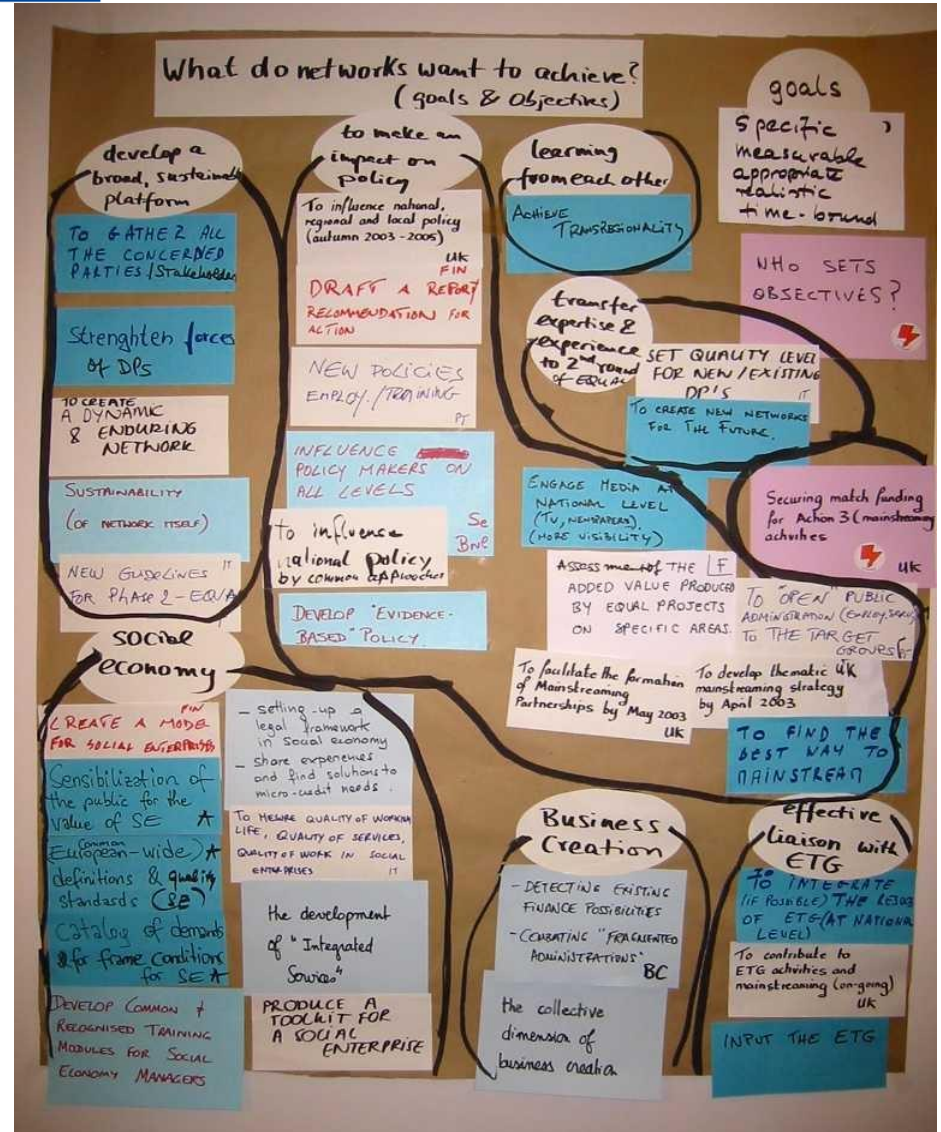 What do networks want to achieve?
(goals & Objectives)
goals
Specific
measurable
appropriate
realistic
time-bound
WHO SETS
OBJECTIVES?
develop a
broad, sustainable
platform
TO GATHER ALL
THE CONCERNED
PARTIES/Stakeholder
Strenghten forces
of DPs
TO CREATE
A DYNAMIC
& ENDURING
NETWORK
SUSTAINABILITY
(OF NETWORK ITSELF)
NEW GUIDELINES IT
FOR PHASE 2-EQUA
to make an
impact on
policy
To influence national,
regional and local policy
(autumn 2003-2005)
UK
FIN
DRAFT A REPORT/
RECOMMENDATION FOR
ACTION
NEW POLICIES
EMPLOY./TRAINING
PT
INFLUENCE
POLICY MAKERS ON
ALL LEVELS
Se
Bnl
To influence
national policy
by common approaches
DEVELOP "EVIDENCE-
BASED" POLICY
learning
from each other
ACHIEVE
TRANSREGIONALITY
transfer
expertise &
experience
to 2nd round
of EQUAL
SET QUALITY LEVEL
FOR NEW/EXISTING
DP'S
IT
TO CREATE NEW NETWORKS
FOR THE FUTURE.
ENGAGE MEDIA AT
NATIONAL LEVEL
(TV, NEWSPAPERS).
(MORE VISIBILITY)
Securing match funding
for Action 3 (mainstreaming
activities
UK
Assessment of THE F
ADDED VALUE PRODUCED
BY EQUAL PROJECTS
ON SPECIFIC AREAS.
TO "OPEN" PUBLIC
ADMINISTRATION (EMPLOY.
TO THE TARGET
GROUPS
To facilitate the formation
of Mainstreaming
Partnerships by May 2003
UK
To develop thematic UK
mainstreaming strategy
by April 2003
TO FIND THE
BEST WAY TO
MAINSTREAM
social
economy
FIN
CREATE A MODEL
FOR SOCIAL ENTERPRISES
Sensibilization of
the public for the
value of SE A
common
European-wide) A
definitions & quality
standards (SE)
Catalog of demands
& for frame conditions
for SE A
DEVELOP COMMON &
RECOGNISED TRAINING
MODULES FOR SOCIAL
ECONOMY MANAGERS
- setting-up a
legal framework
in social economy
- share experiences
and find solutions to
micro-credit needs.
TO MESURE QUALITY OF WORKING
LIFE, QUALITY OF SERVICES,
QUALITY OF WORK IN SOCIAL
ENTERPRISES IT
the development
of "Integrated
Services"
PRODUCE A
TOOLKIT FOR
A SOCIAL
ENTERPRISE
Business
Creation
- DETECTING EXISTING
FINANCE POSSIBILITIES
- COMBATING "FRAGMENTED
ADMINISTRATIONS"
BC
the collective
dimension of
business creation
effective
liaison with
ETG
TO INTEGRATE
(IF POSSIBLE) THE
OF ETG (AT NATIONAL
LEVEL)
To contribute to
ETG activities and
mainstreaming (on-going)
UK
INPUT THE ETG